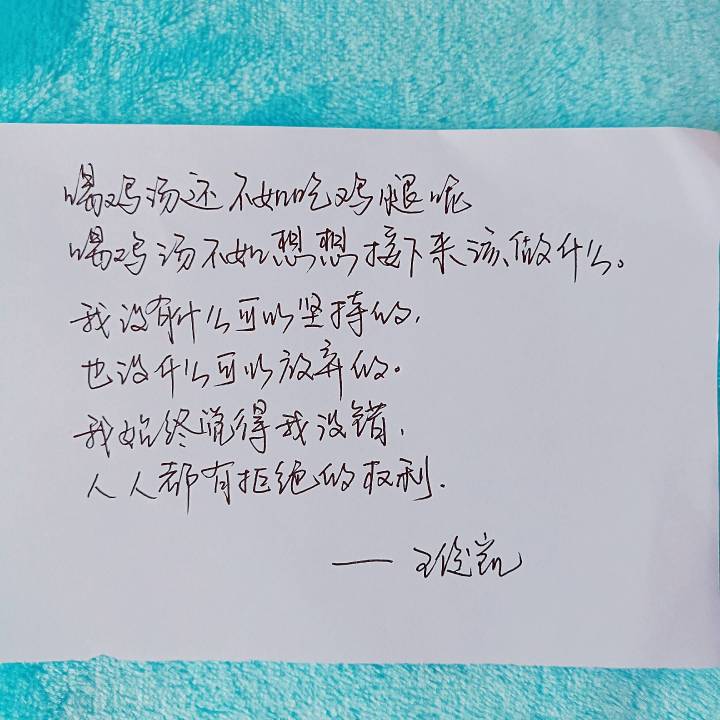 喝鸡汤还不如吃鸡腿呢
喝鸡汤不如想想接下来该做什么。
我没有什么可以坚持的,
也没什么可以放弃的。
我始终觉得我没错,
人人都有拒绝的权利.
—— 王俊凯